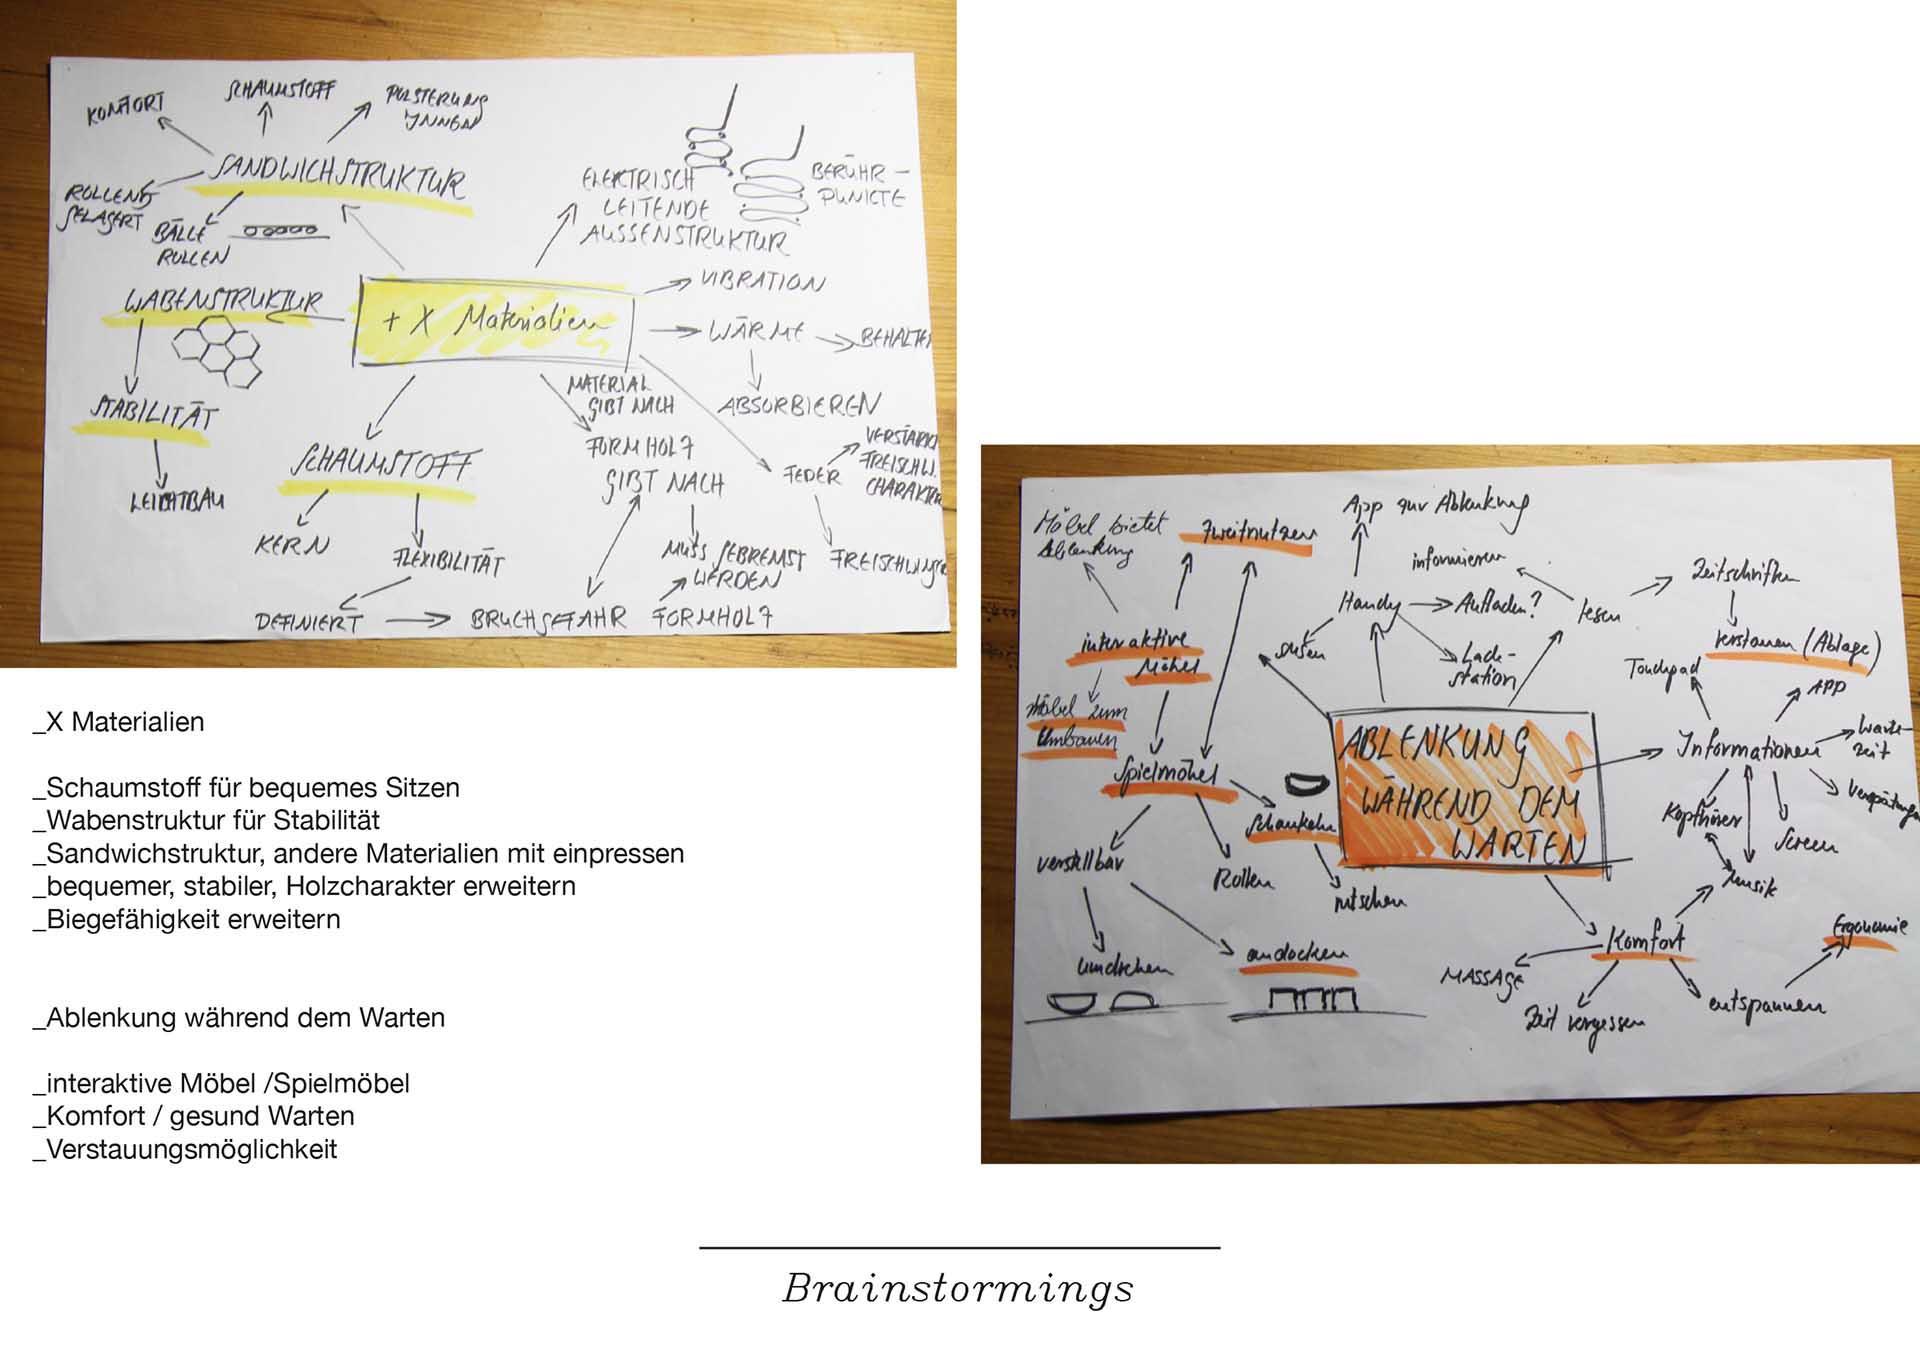 KOMFORT
SCHAUMSTOFF
POLSTERUNG
INNEN
SANDWICHSTRUKTUR
ROLLEND
GELAGERT
BÄLLE
ROLLEN
ELEKTRISCH
LEITENDE
AUSSENSTRUKTUR
BERÜHR-
PUNKTE
WABENSTRUKTUR
+ X Materialien
VIBRATION
WÄRME
BEHALTEN
ABSORBIEREN
STABILITÄT
LEICHTBAU
SCHAUMSTOFF
KERN
FLEXIBILITÄT
DEFINIERT
BRUCHGEFAHR FORMHOLZ
MATERIAL
GIBT NACH
FORMHOLZ
GIBT NACH
MUSS GEBREMST
WERDEN
FEDER
VERSTÄRKT
FREISCHW.
CHARAKTER
FREISCHWINGER
Möbel bietet
Ablenkung
Zweitnutzen
App zur Ablenkung
informieren
Handy
Aufladen?
lesen
Zeitschriften
verstauen (Ablage)
Lade-
station
interaktive
Möbel
Möbel zum
Umbauen
Spielmöbel
schaukeln
verstellbar
Rollen
rutschen
umdrehen
andocken
ABLENKUNG
WÄHREND DEM
WARTEN
Touchpad
APP
Informationen
Warte-
zeit
Kopfhörer
Screen
Musik
Komfort
MASSAGE
Zeit vergessen
entspannen
Ergonomie
_X Materialien
_Schaumstoff für bequemes Sitzen
_Wabenstruktur für Stabilität
_Sandwichstruktur, andere Materialien mit einpressen
_bequemer, stabiler, Holzcharakter erweitern
_Biegefähigkeit erweitern
_Ablenkung während dem Warten
_interaktive Möbel /Spielmöbel
_Komfort / gesund Warten
_Verstauungsmöglichkeit
Brainstormings